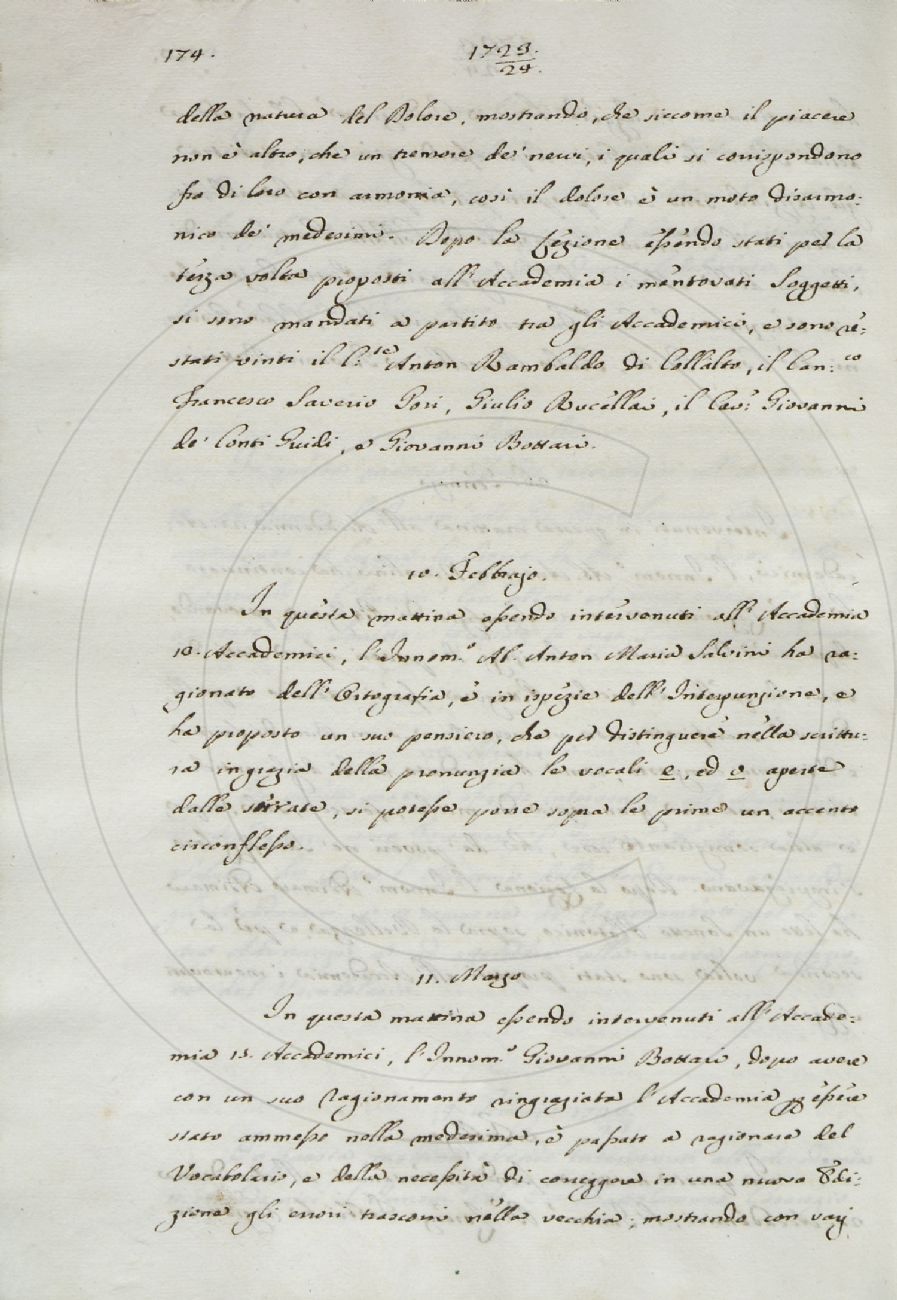 174.
1723.
24.
della natura del Dolore, mostrando, che siccome il piacere
non è altro, che un tremore de' nervi, i quali si corrispondono
fra di loro con armonia, così il dolore è un moto disarmo:
nico de' medesimi. Dopo la Lezione essendo stati per la
terza volta proposti all'Accademia i mentovati Soggetti,
si sono mandati a partito tra gli Accademici, e sono re:
stati vinti il C.te Anton Rambaldo di Collalto, il Can:co
Francesco Saverio Gori, Giulio Rucellai, il Cav: Giovanni
de' Conti Guidi, e Giovanni Bottari.
10. Febbrajo.
In questa mattina essendo intervenuti all'Accademia
18. Accademici, l'Innom.o Ab. Anton Maria Salvini ha ra:
gionato dell'Ortografia, e in ispezie dell'Interpunzione, e
ha proposto un suo pensiero, che per distinguere nella scrittu:
ra in grazia della pronunzia le vocali e, ed o aperte
dalle serrate, si potesse porre sopra le prime un accento
circonflesso.
11. Marzo
In questa mattina essendo intervenuti all'Accade:
mia 15. Accademici, l'Innom.o Giovanni Bottari, dopo avere
con un suo ragionamento ringraziata l'Accademia p essere
stato ammesso nella medesima, è passato a ragionare del
Vocabolario, e della necessità di correggere in una nuova Edi:
zione gli errori trascorsi nella vecchia; mostrando con varj